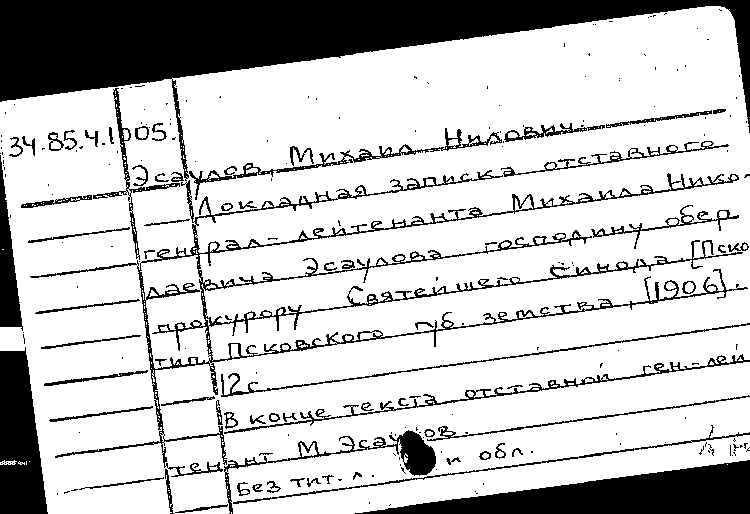 34.85.4.1005.
Эсаулов, Михаил Нилович.
Докладная записка отставного
генерал-лейтенанта Михаила Нико-
лаевича Эсаулова господину обер
прокурору Святейшего Синода. [Пско
тип. Псковского губ. земства, [1906].
12 с.
В конце текста отставной ген.-лей
тенант М. Эсаулов.
Без тит. л. и обл.